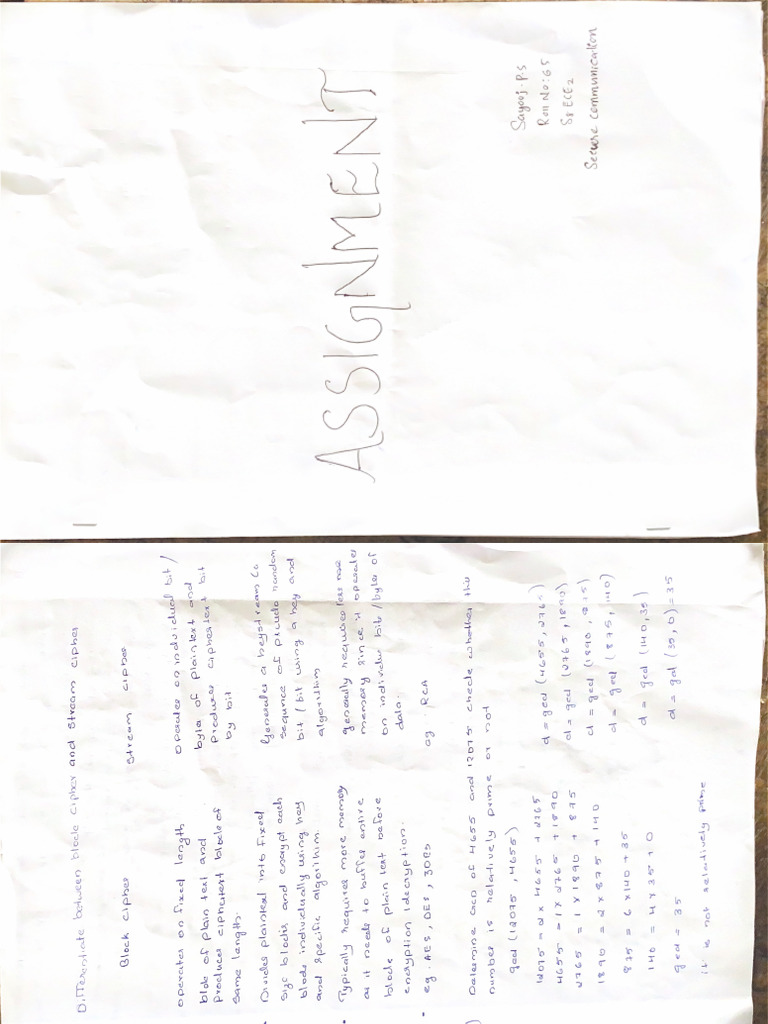 ASSIGNMENT
Sayooj.P.S
Roll No:65
S8 ECE2
Secure communication
Differentiate between block cipher and stream cipher
Block cipher
stream cipher
operates on fixed length
block of plain text and
produces ciphertext block of
same length.
operates on individual bit/
byte of plaintext and
produces ciphertext bit
by bit
Divides plaintext into fixed
size blocks and encrypt each
block individually using key
and specific algorithm.
Generates a keystream (a
sequnce of pseudo random
bit/bit using a key and
algorithm
Typically requires more memory
as it needs to buffer entire
block of plain text before
encryption/decryption.
generally requires less
memory since it operates
on individual bits/bytes of
data.
eg. AES, DES, 3DES
eg. RC4
Determine GCD of 4655 and 12075 check whether this
number is relatively prime or not
gcd (12075, 4655)
12075 = 2 x 4655 + 2765 d = gcd (4655, 2765)
4655 = 1 x 2765 + 1890 d = gcd (2765, 1890)
2765 = 1 x 1890 + 875 d = gcd (1890, 875)
1890 = 2 x 875 + 140 d = gcd (875, 140)
875 = 6 x 140 + 35 d = gcd (140, 35)
140 = 4 x 35 + 0 d = gcd (35, 0) = 35
gcd = 35
it is not relatively prime